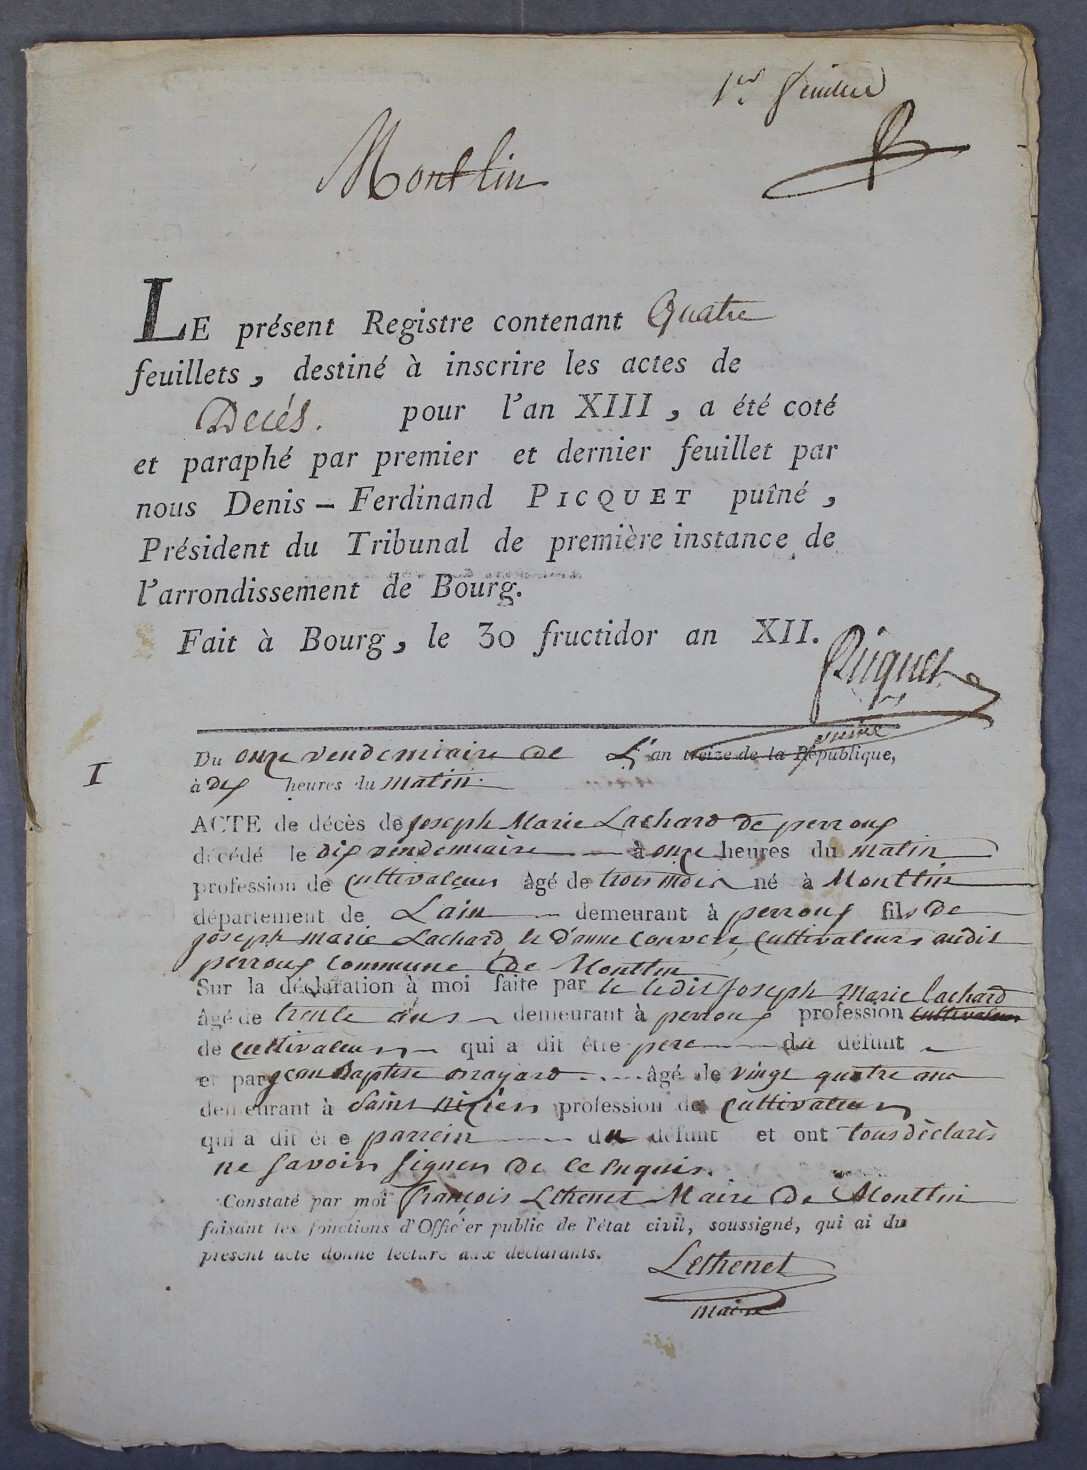 1er feuillet
Montlin
LE présent Registre contenant Quatre
feuillets, destiné à inscrire les actes de
Decés. pour l'an XIII, a été coté
et paraphé par premier et dernier feuillet par
nous Denis – Ferdinand PICQUET puîné,
Président du Tribunal de première instance de
l'arrondissement de Bourg.
Fait à Bourg, le 30 fructidor an XII.
Picquet
puiné
1
Du onze vendemiaire de L'an treize de la République,
à dix heures du matin.
ACTE de décès de joseph Marie Lachard de perroux
décédé le dix vendemiaire à onze heures du matin
profession de cultivateur âgé de trois mois né à Montlin
département de Lain demeurant à perroux fils de
joseph marie Lachard, et d'anne Convert, cultivateurs audit
perroux commune de Montlin
Sur la déclaration à moi faite par le ledit joseph marie lachard
âgé de trente ans demeurant à perroux profession cultivateur
de cultivateur qui a dit être pere du défunt
et par jean Baptiste orayard âgé de vingt quatre ans
demeurant à saint nizier profession de cultivateur
qui a dit être parrein du défunt et ont tous déclarés
ne savoir signer de ce enquis.
Constaté par moi françois Lethenet Maire de Montlin
faisant les fonctions d'Officier public de l'état civil, soussigné, qui ai du
présent acte donné lecture aux déclarants.
Lethenet
maire